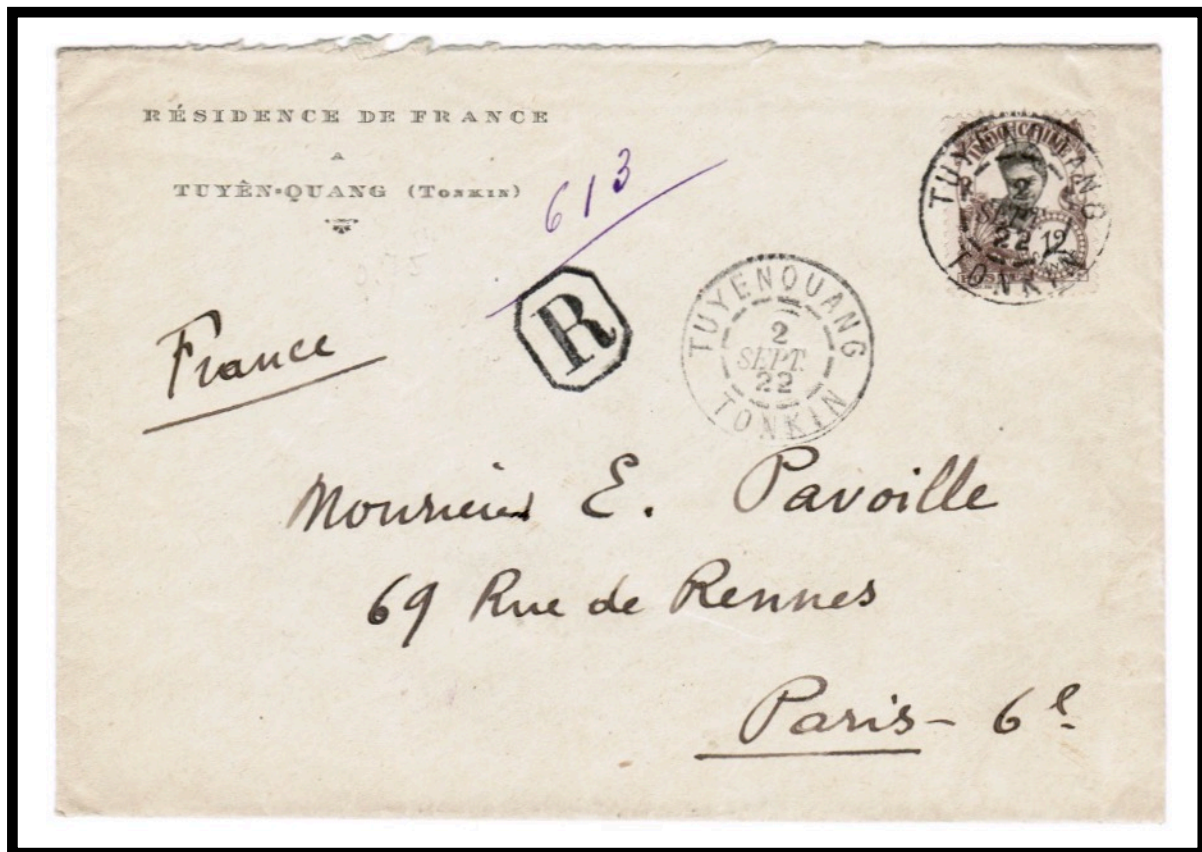 RÉSIDENCE DE FRANCE
A
TUYÊN-QUANG (TONKIN)
613
R
France
TUYENQUANG
2
SEPT.
22
TONKIN
INDOCHINE
12
TUYENQUANG
2
SEPT.
22
TONKIN
Monsieur E. Pavoille
69 Rue de Rennes
Paris - 6e